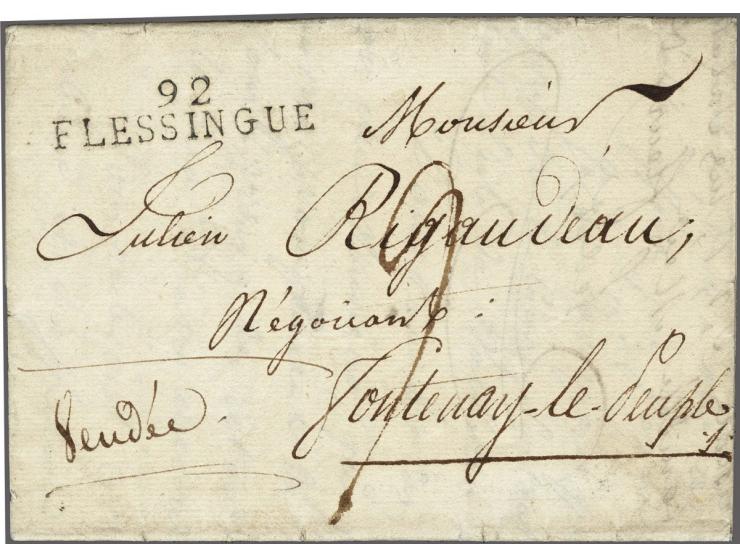 92
FLESSINGUE
Monsieur
Julien Rigaudeau,
Négociant:
Fontenay-le-Peuple
Vendée.
9